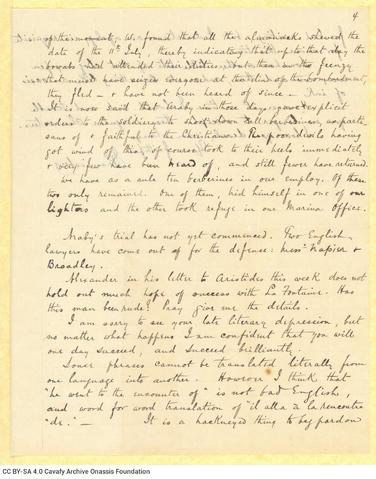 4
of the moment. We found that all the almanacks showed the
date of the 11th July, thereby indicating that up to that day the
bowabs had attended their duties - but then the frenzy
that must have seized everyone at the din of the bombardment,
they fled - & have not been heard of since -
It is now said that Araby in those days gave explicit
orders to the soldiery to shoot down all berberines, as parti-
sans of & faithful to the Christians. The poor devils having
got wind of this, of course took to their heels immediately
& few have been heard of, and still fewer have returned.
We have as a rule ten berberines in our employ. Of these
two only remained. One of them, hid himself in one of our
lighters and the other took refuge in one Marina Office.
Araby's trial has not yet commenced. Two English
lawyers have come out for the defense: Mess: Napier &
Broadley.
Alexander in his letter to Aristides this week does not
hold out much hope of success with La Fontaine. Has
this man been rude? Pray give me the details.
I am sorry to see your late literary depression, but
no matter what happens I am confident that you will
one day succeed, and succeed brilliantly.
Some phrases cannot be translated literally from
one language into another. However I think that
"he went to the encounter of" is not bad English,
and word for word translation of "il alla à la rencontre
"de." — It is a hackneyed thing to beg pardon
CC BY-SA 4.0 Cavafy Archive Onassis Foundation